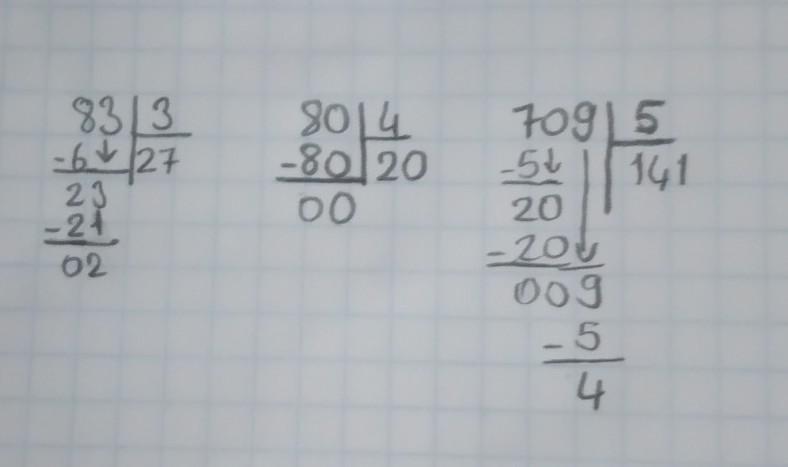 83 3
-6↓ 27
23
-21
02
80 4
-80 20
00
709 5
-5↓ 141
20
-20↓
009
-5
4